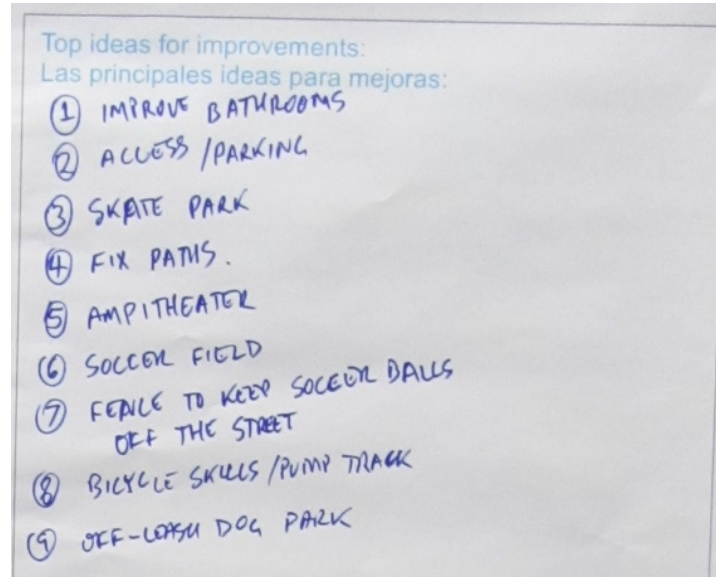 Top ideas for improvements:
Las principales ideas para mejoras:
① IMPROVE BATHROOMS
② ACCESS / PARKING
③ SKATE PARK
④ FIX PATHS.
⑤ AMPITHEATER
⑥ SOCCER FIELD
⑦ FENCE TO KEEP SOCCER BALLS
OFF THE STREET
⑧ BICYCLE SKILLS / PUMP TRACK
⑨ OFF-LEASH DOG PARK